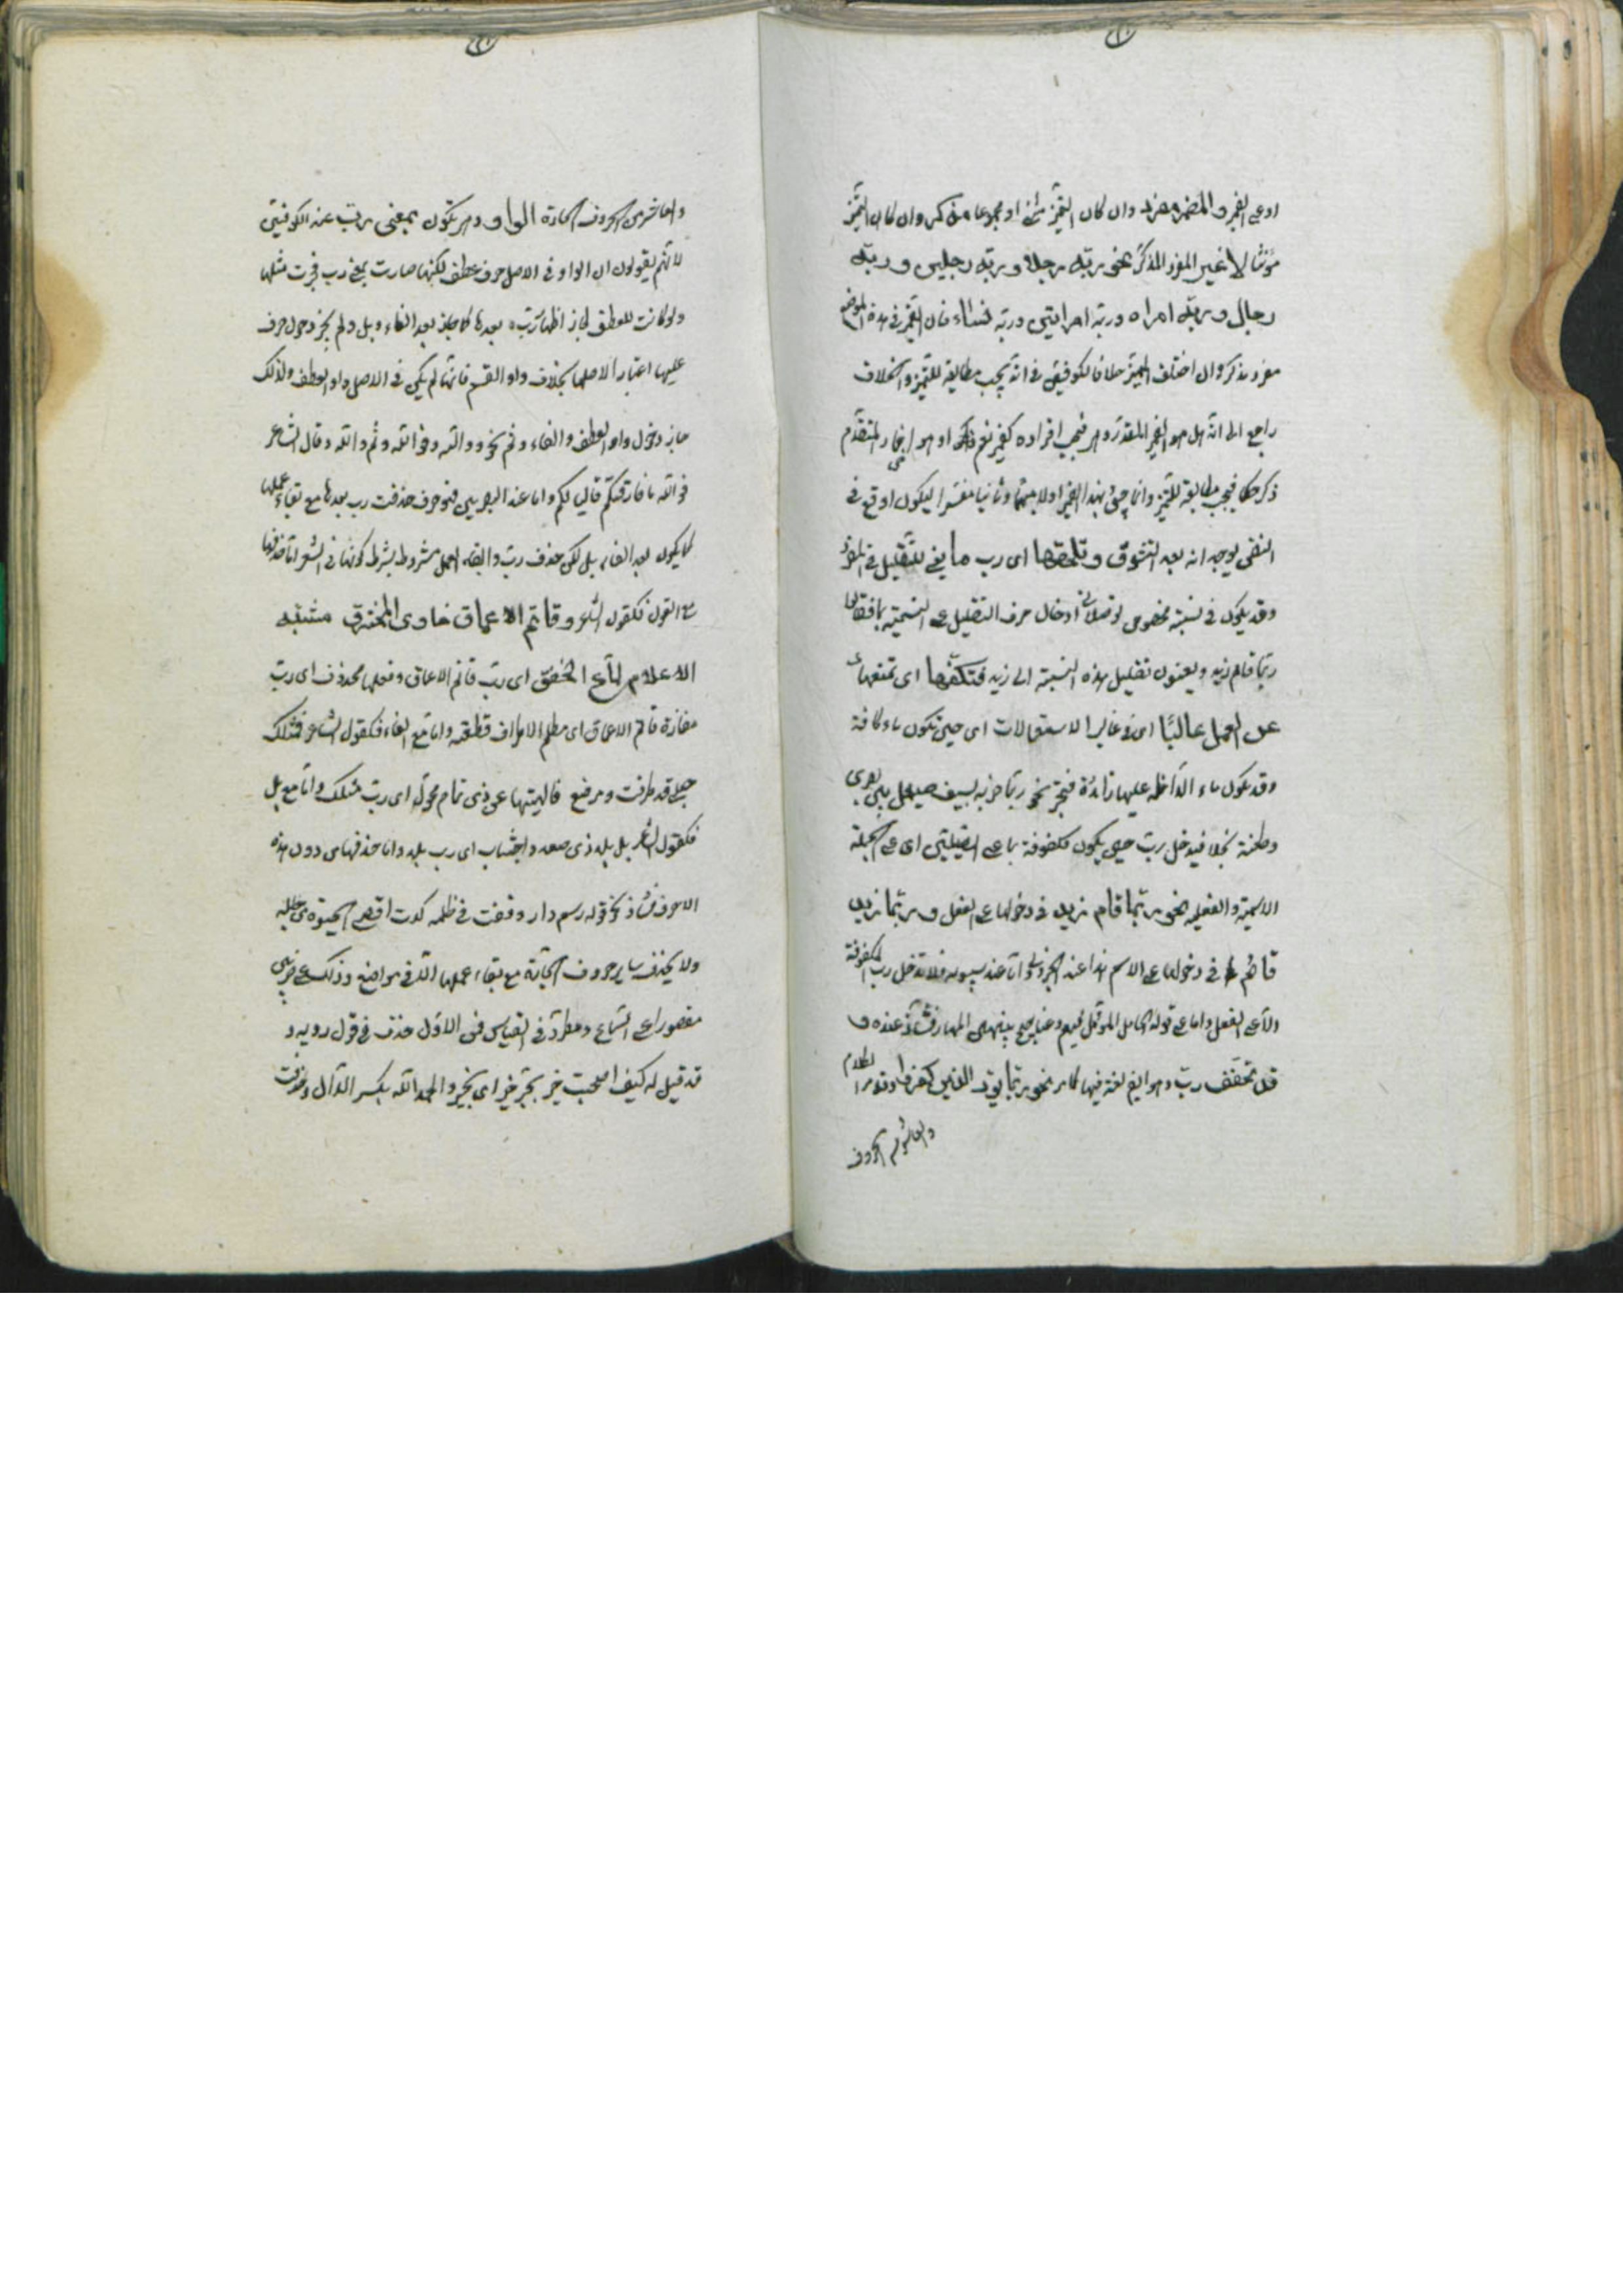 او على الضمير والمضمر مفرد وان كان التميز مثنى او مجموعا مذكر وان كان التميز
مؤنثا لا غير المفرد المذكر نحو ربّه رجلا وربّه رجلين وربّه
رجال وربّه امراه وربّه امراتين وربّه نساء فان الضمير في هذه المواضع
مفرد مذكر وان اختلف المميّز خلافا لكوفيين في انه يجب مطابقة للتميز والخلاف
راجع الى انه هل هو الضمير المقدر وهو فيجب افراده كضمير نعم او هو راجع المتقدّم
ذكر حكما فيجب مطابقة للتميز وانما جيئ بهذا الضمير اولا مبهما وثانيا مفسرا ليكون اوقع في
النفس لوجه انه بعد التشوق وتلحقها اى رب ما فهي للتقليل في المفرد
وقد يكون في نسبة مخصوص ادخال حرف التقليل على التسمية
ربّما قام زيد ويعنون تقليل هذه النسبة الى زيد فتكفّها اى تمنعها
عن العمل غالبًا اى في غالب الاستعمالات اى حين تكون ما كافة
وقد تكون ما الداخله عليها زائدة فتجرّ نحو ربّما ضربة بسيف صيقل بين بصرى
وطعنة نجلا فيدخل ربّ حين يكون مكفوفة بما على القبيلتين اى على الجملة
الاسميّة والفعليه نحو ربّما قام زيد في دخولها على الفعل وربّما زيد
قائم في دخولها على الاسم هذا عند الجزولي وامّا عند سيبويه فلا تدخل رب المكفوفة
الّا على الفعل واما على قوله الجامل الموبّل فيهم وعناجيج بينهن المهار فشاذ عنده و
قد تخفّف ربّ وهو ايضا لغة فيها كما مر نحو ربّما يودّ الذين كفروا وقد مر الكلام
والعاشر من الحروف
والعاشر من الحروف الجارّة الواو وهو تكون بمعنى ربّ عند الكوفيين
لانّهم يقولون ان الواو في الاصل حرف عطف لكنها صارت بمعنى رب فجرت مثلها
ولو كانت للعطف لجاز اظهار ربّ بعدها كما جاز بعد الفاء وبل ولم يجز دخول حرف
عليها اعتبارا لاصلها بخلاف واو القسم فانّها لم يكن في الاصل واو العطف ولذلك
جاز دخول واو العطف والفاء وثم نحو ووالله وفو الله وثم والله وقال الشاعر
فو الله ما فارقتكم قاليا لكم واما عند البصريين فهو حرف حذفت رب بعدها مع بقاء عملها
كما يكون بعد الفاء وبل لكن حذف رب وابقاء العمل مشروط بشرط كونها في الشعر امّا حذفها
مع الواو فكقول الشاعر وقاتم الاعماق خاوى المخترق مشتبه
الاعلام لمّاع الخفق اى ربّ قاتم الاعماق وفعلها محذوف اى ربّ
مفازة قاتم الاعماق اى مظلم الاطراف قطعته وامّا مع الفاء فكقول الشاعر فمثلك
حبلى قد طرقت ومرضع فالهيتها عن ذى تمائم محول اى ربّ مثلك وامّا مع بل
فكقول الشاعر بل بلد ذى صعد واجتناب اى رب بلد وامّا حذفها من دون هذه
الاحرف فشاذ نحو قوله رسم دار وقفت في طلله كدت اقضى الحيوة من جلله
ولا يحذف ساير حروف الجارّة مع بقاء عملها الّا في مواضع وذلك على ضربين
مقصورا على السماع ومطرد في القياس فمن الاوّل حذف في قول رويه و
قد قيل له كيف اصحبت خير بجرّ خير اى بخير والحمد الله بكسر الدّال وحذفت